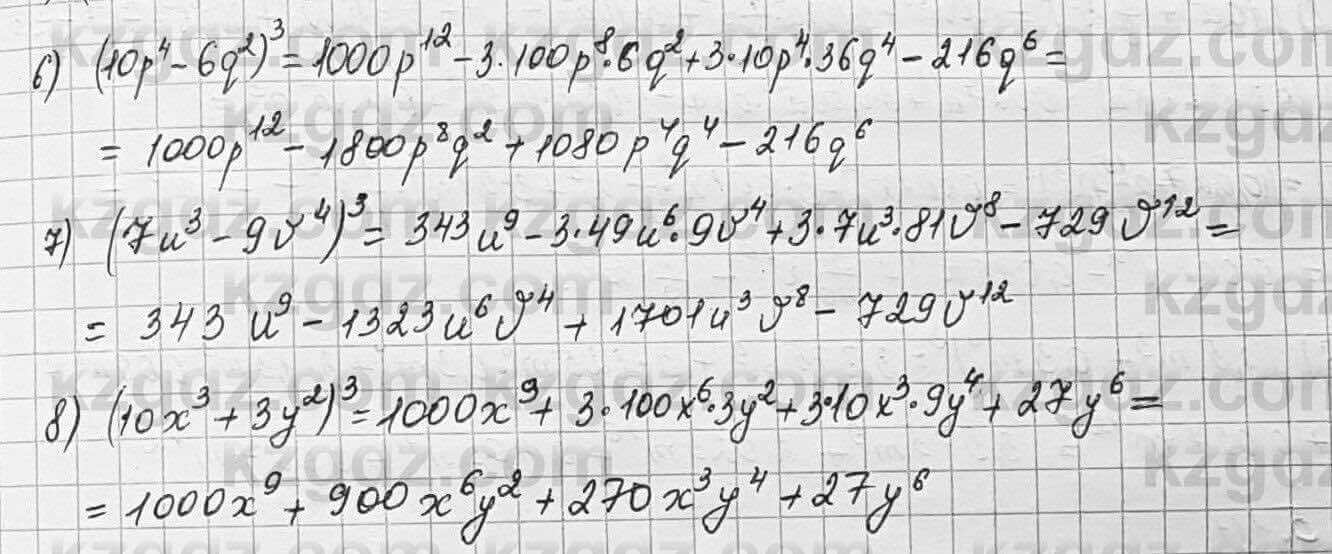 6) (10p⁴ - 6q²)³ = 1000p¹² - 3·100p⁸·6q² + 3·10p⁴·36q⁴ - 216q⁶ =
= 1000p¹² - 1800p⁸q² + 1080p⁴q⁴ - 216q⁶
7) (7u³ - 9v⁴)³ = 343u⁹ - 3·49u⁶·9v⁴ + 3·7u³·81v⁸ - 729v¹² =
= 343u⁹ - 1323u⁶v⁴ + 1701u³v⁸ - 729v¹²
8) (10x³ + 3y²)³ = 1000x⁹ + 3·100x⁶·3y² + 3·10x³·9y⁴ + 27y⁶ =
= 1000x⁹ + 900x⁶y² + 270x³y⁴ + 27y⁶